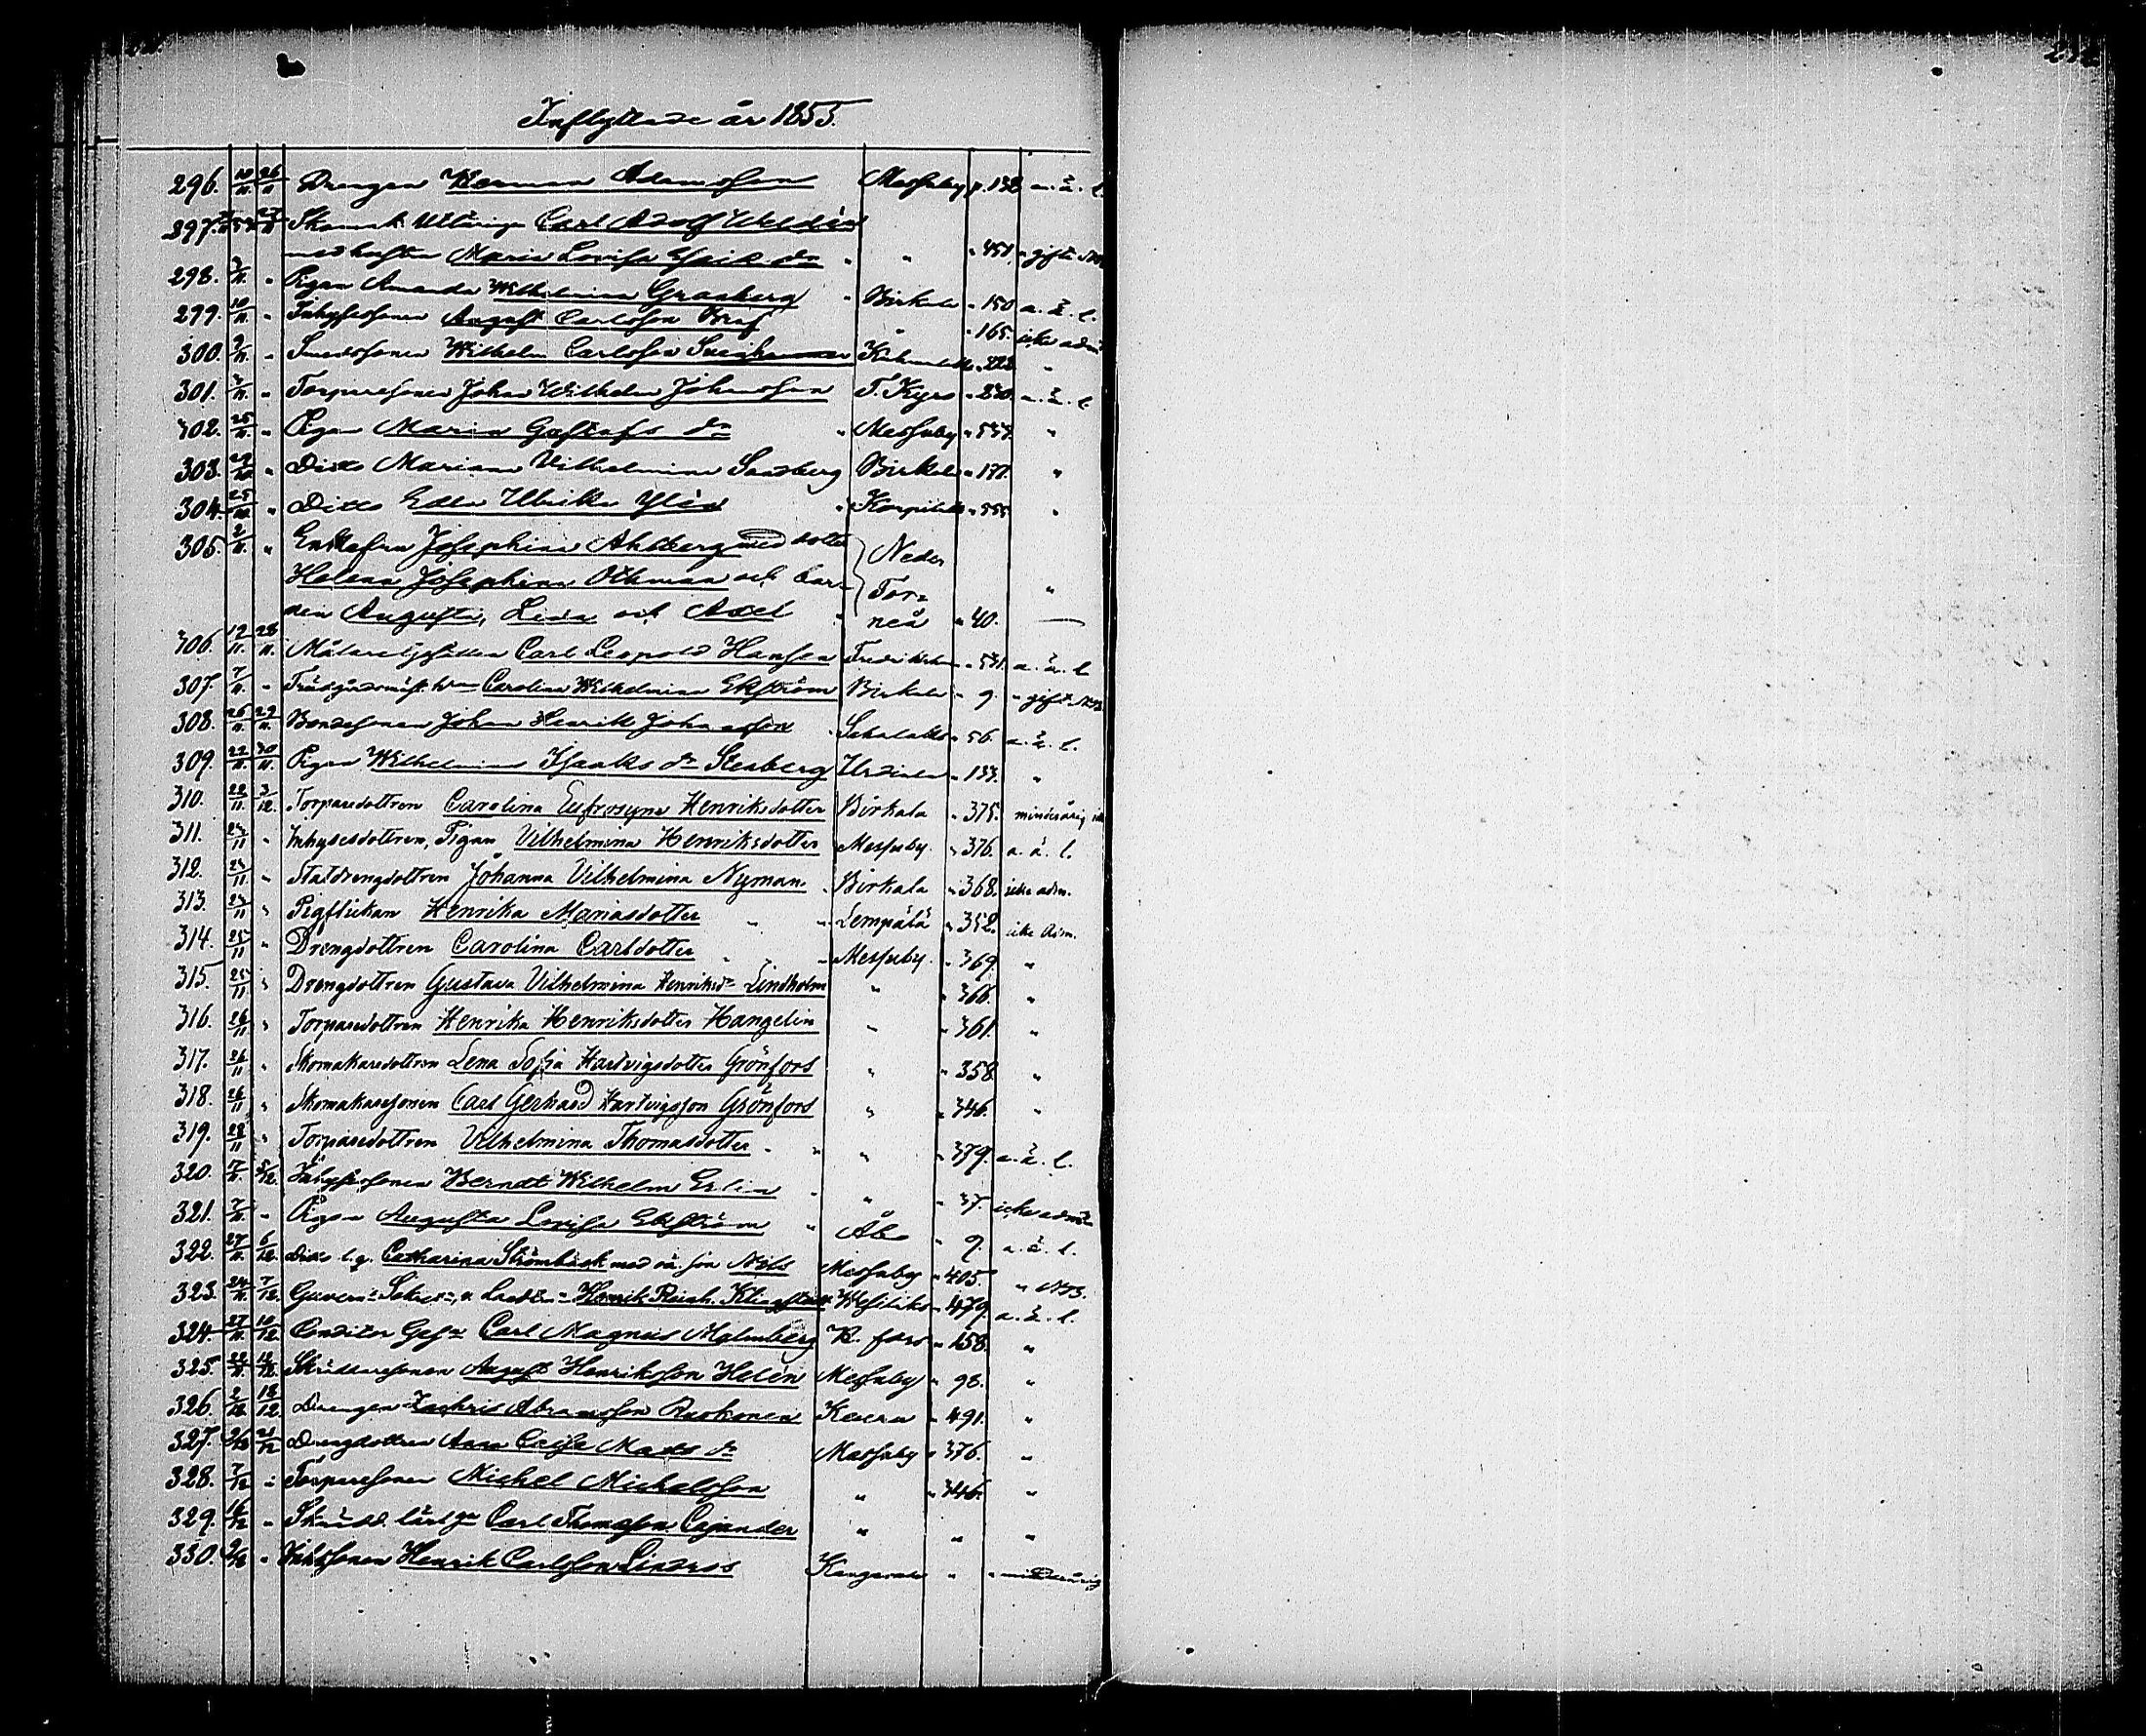 Inflyttade år 1855.
296. 10/11 26/11 Drengen Herman Adamsson Messuby p. 132 a. ä. l.
297. Skomak. Utlärige Carl Adolf Weldén
med hustru Maria Lovisa " " " 451. " gift
298. 3/11 " Pigan Amanda Wilhelmina Granberg " Birkala " 150 a. ä. l.
299. 10/11 " Inhysessonen August Carlsson " " 165. icke adm.
300. 9/11 " Smedssonen Wilhelm Carlsson "
301. 3/11 " Torparesonen Johan Wilhelm Johansson T. Kyro " 230. a. ä. l.
302. 25/11 " Pigan Maria Gustafs dr " Messuby " 537. "
303. 29/10 " Ditto Mariana Vilhelmina Sandberg Birkala " 177. "
304. 25/10 " Ditto Edla Ulrika Ylén " Korpilaks " 555. "
305. 2/11 " Enkefru Josephina Ahlberg med dotter Neder
Helena Josephina Othman och bar- Tor- "
nen Augusta, Lina och Axel " neå " 40. —
306. 12/11 28/11 Målaregesällen Carl Leopold Hansen Fredrikshamn " 531. a. ä. l.
307. 7/11 " Trädgårdsmäst. Carolina Wilhelmina Ekström Birkala " 9. " gift. NB.
308. 26/11 29/11 Bondesonen Johan Henrik Johansson " " 56. a. ä. l.
309. 22/11 30/11 Pigan Wilhelmina Isaaks dr Stenberg Urdiala " 133. "
310. 22/11 3/12 Torparedottren Carolina Eufrosyne Henriksdotter Birkala " 375. minderårig
311. 23/11 " Inhysesdottren, Pigan Vilhelmina Henriksdotter Messuby. " 376. a. ä. l.
312. 23/11 " Statdrengdottren Johanna Vilhelmina Nyman " Birkala " 368. icke adm.
313. 23/11 " Pigflickan Henrika Mariasdotter " " Lempälä " 352. icke Adm.
314. 25/11 " Drengdottren Carolina Carlsdotter " " Messuby. " 369. "
315. 25/11 " Drengdottren Gustava Vilhelmina Henriksdr Lindholm " " 366. "
316. 26/11 " Torparedottren Henrika Henriksdotter Hangelin " " 361. "
317. 26/11 " Skomakaredottren Lena Sofia Hartvigsdotter Grönfors " " 358. "
318. 26/11 " Skomakaresonen Carl Gerhard Hartvigsson Grönfors " " 346. "
319. 28/11 " Torparedottren Vilhelmina Thomasdotter " " " " 379. a. ä. l.
320. 7/11 5/12 Inhysessonen Berndt Wilhelm Erlin " " " 37. icke adm.
321. 7/11 " Pigan Augusta Lovisa Ekström " Åbo " 9. a. ä. l.
322. 27/11 6/12 Ditto l. g. Catharina Strömbäck med oä. son Nils Messuby " 405. " NB.
323. 24/11 7/12 Guvern. Henrik Reinh. Vesilaks " 479. a. ä. l.
324. 27/11 10/12 Conditor Ges. Carl Magnus Malmberg H. fors " 158. "
325. 22/11 12/12 Skräddaresonen August Henriksson Helén Messuby " 98. "
326. 2/12 18/12 Drengen Zachris Abramsson Ruokonen Keuru " 491. "
327. 21/12 Drengdottren Anna Caisa Mats dr Messuby " 376. "
328. 7/12 " Torparesonen Michel Michelsson " " 346. "
329. 16/12 " Skrädd. lärl. Carl Thomasson Cajander " " "
330. " Henrik Carlsson Lindros Kangasala " " minderårig